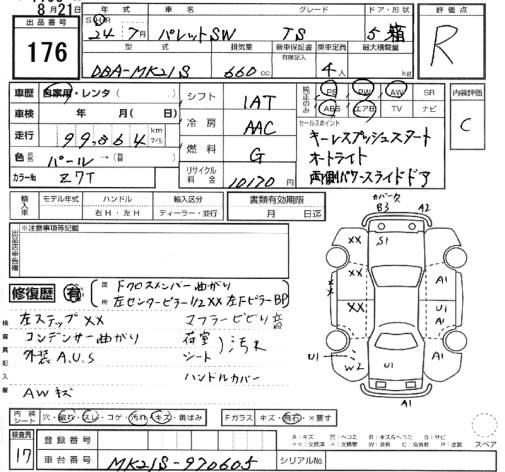 8月21日
出品番号 176
年式 車名 グレード ドア・形状 評価点
24年 7月 パレットSW TS 5 箱 R
型式 排気量 新車保証書 乗車定員 最大積載量
有限記入
DBA-MK21S 660cc 4人 kg
車歴 自家用・レンタ( ) シフト 1AT 純正のみ PS PW AW SR 内装評価
ABS エアB TV ナビ C
車検 年 月( ) 冷房 AAC
セールスポイント
キーレスプッシュスタート
オートライト
両側パワースライドドア
走行 99,864 km マイル 燃料 G
色 パール →( ) リサイクル料金 10170円
カラーNo Z7T
輸入車 モデル年式 ハンドル 輸入区分 書類有効期限
右H・左H ディーラー・並行 月 日迄
※注意事項等記載
カバー欠
B3 A2
XX S1
A1
XX XX A1
U1 U1 A1
W2 U1
A1
修復歴 有 Fクロスメンバー曲がり
左センターピラー1/2XX 左FピラーBP
検査員記入欄
左ステップXX マフラービビリ音
コンデンサー曲がり 荷室
シート )汚れ
外装A.U.S
ハンドルカバー
AWキズ
内装シート 穴・スレ・コゲ・汚れ・キズ・黄ばみ Fガラス キズ・飛石・×要す
A:キズ U:ヘコミ B:キズ&ヘコミ S:サビ
XX:交換済 X:交換要 W:波有 C:腐食 P:塗装 スペア
検査員 17 登録番号
車台番号 MK21S-970605 シリアルNo.